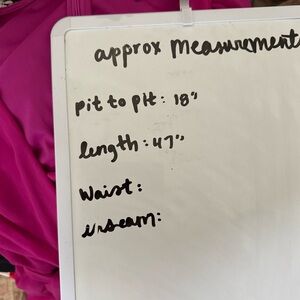 approx measurement
pit to pit: 18"
length: 47"
Waist:
inseam: